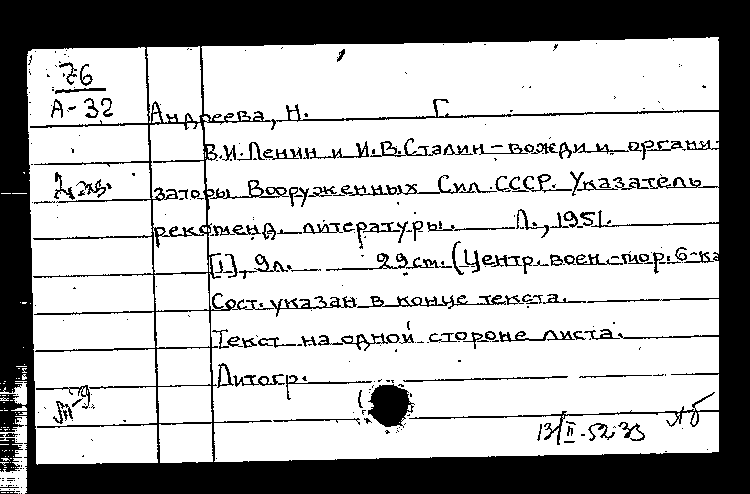 Z6
А-32
Андреева, Н. Г.
В.И. Ленин и И.В. Сталин - вожди и органи-
2 экз.
заторы Вооруженных Сил СССР. Указатель
рекоменд. литературы. Л., 1951.
[1], 9 л. 29 см. (Центр. воен.-мор. б-ка
Сост. указан в конце текста.
Текст на одной стороне листа.
Литогр.
13/II-52. 33